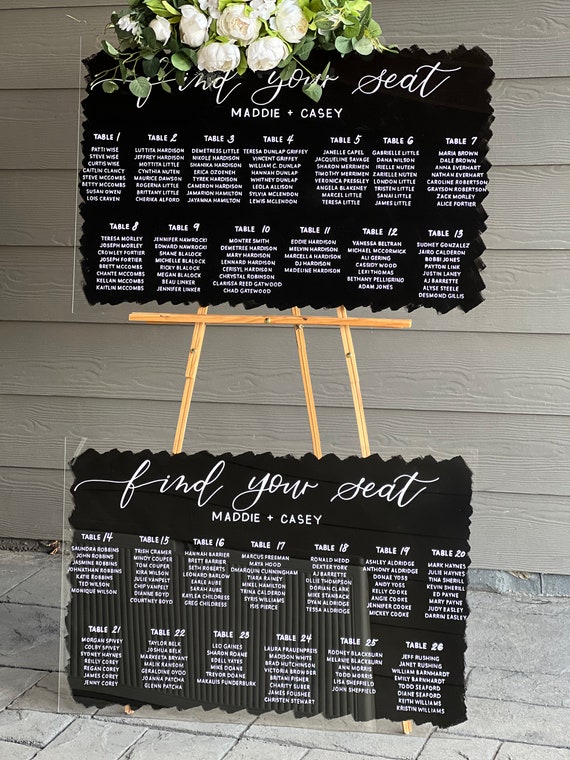 find your seat
MADDIE + CASEY
TABLE 1
PATTI WISE
STEVE WISE
CURTIS WISE
CAITLIN CLANCY
STEVE MCCOMBS
BETTY MCCOMBS
SUSAN OWEN
LOIS CRAVEN
TABLE 2
LUTTITA HARDISON
JEFFREY HARDISON
MOTTITA LITTLE
CYNTHIA NUTEN
MAURICE DAWSON
ROGERINA LITTLE
BRITTANY LITTLE
CHERIKA ALFORD
TABLE 3
DEMETRESS LITTLE
NIKOLE HARDISON
SHANIKA HARDISON
ERICA OZOENEH
TYREK HARDISON
CAMERON HARDISON
JAMARION HAMILTON
JAYANNA HAMILTON
TABLE 4
TERESA DUNLAP GRIFFEY
VINCENT GRIFFEY
WILLIAM C. DUNLAP
HANNAH DUNLAP
WHITNEY DUNLAP
LEOLA ALLISON
SYLVIA MCLENDON
LEWIS MCLENDON
TABLE 5
JANELLE CAPEL
JACQUELINE SAVAGE
SHARON MERRIMEN
TIMOTHY MERRIMEN
VERONICA PRESSLEY
ANGELA BLAKENEY
MARCEL LITTLE
TERESA LITTLE
TABLE 6
GABRIELLE LITTLE
DANA WILSON
IRIELLE NUTEN
ZARIELLE NUTEN
LONDON LITTLE
TRISTEN LITTLE
SANAI LITTLE
JAMES LITTLE
TABLE 7
MARIA BROWN
DALE BROWN
ANNA EVERHART
NATHAN EVERHART
CAROLINE ROBERTSON
GRAYSON ROBERTSON
ZACK MORLEY
ALICE FORTIER
TABLE 8
TERESA MORLEY
JOSEPH MORLEY
CROWLEY FORTIER
JOSEPH FORTIER
BRETT MCCOMBS
CHANTE MCCOMBS
KELLAN MCCOMBS
KAITLIN MCCOMBS
TABLE 9
JENNIFER NAWROCKI
EDWARD NAWROCKI
SHANE BLALOCK
MICHELLE BLALOCK
RICKY BLALOCK
MEGAN BLALOCK
BEAU LINKER
JENNIFER LINKER
TABLE 10
MONTRE SMITH
DEMETREE HARDISON
MARY HARDISON
LENNARD HARDISON
CERISYL HARDISON
CHRYSTAL ROBINSON
CLARISSA REED GATWOOD
CHAD GATEWOOD
TABLE 11
EDDIE HARDISON
MELVIN HARDISON
MARCELLA HARDISON
DJ HARDISON
MADELINE HARDISON
TABLE 12
VANESSA BELTRAN
MICHAEL MCCORMICK
ALI GERING
CASSIDY WOOD
LEXI THOMAS
BETHANY PELLIGRINO
ADAM JONES
TABLE 13
SUDHEY GONZALEZ
JAIRO CALDERON
BOBBI JONES
PAYTON LINK
JUSTIN LANEY
AJ BARRETTE
ALYSE STEELE
DESMOND GILLIS
find your seat
MADDIE + CASEY
TABLE 14
SAUNDRA ROBBINS
JOHN ROBBINS
JASMINE ROBBINS
JOHNATHAN ROBBINS
KATIE ROBBINS
TED WILSON
MONIQUE WILSON
TABLE 15
TRISH CRAMER
MINDY COUPER
TOM COUPER
KIRA WILSON
JULIE VANPELT
CHIP VANPELT
DIANNE BOYD
COURTNEY BOYD
TABLE 16
HANNAH BARRIER
BRETT BARRIER
SETH ROBERTS
LEONARD BARLOW
EARLE AUBE
SARAH AUBE
KAYLEA CHILDRESS
GREG CHILDRESS
TABLE 17
MARCUS FREEMAN
MAYA HOOD
DMARQUIN CUNNINGHAM
TIARA RAINEY
MIKEL HAMILTON
TRINA CALDERON
SYRIS WILLIAMS
ISIS PIERCE
TABLE 18
RONALD HEDD
DEXTER YORK
AJ BARRETTE
OLLIE THOMPSON
DORIAN CLARK
MIKE STANBACK
RYAN ALDRIDGE
TESSA ALDRIDGE
TABLE 19
ASHLEY ALDRIDGE
ANTHONY ALDRIDGE
DONAE YOSS
ANDY YOSS
KELLY COOKE
ANGIE COOKE
JENNIFER COOKE
MICKEY COOKE
TABLE 20
MARK HAYNES
JULIE HAYNES
TINA SHERRILL
KEVIN SHERRILL
ED PAYNE
MARY PAYNE
JUDY EASLEY
DARRIN EASLEY
TABLE 21
MORGAN SPIVEY
COLBY SPIVEY
SYDNEY HAYNES
REILLY COREY
REGAN COREY
JAMES COREY
JENNY COREY
TABLE 22
TAYLOR BELK
JOSHUA BELK
MARKEETA BRYAN
MALIK RANSOM
GERALDINE OYDO
JOANNA PACHA
GLENN PATCHA
TABLE 23
LEO GAINES
SHARON ROANE
EDELL YATES
MIKE DOANE
TREVOR DOANE
MAKALIIS FUNDERBURK
TABLE 24
LAURA FRAUENPREIS
MADISON WHITE
BRAD HUTCHINSON
VICTORIA BROWDER
BRITANI FISHER
CHARITY GUBER
JAMES FOUSHEE
CHRISTEN STEWART
TABLE 25
RODNEY BLACKBURN
MELANIE BLACKBURN
ANN MORRIS
TODD MORRIS
LISA SHEFFIELD
JOHN SHEFFIELD
TABLE 26
JEFF RUSHING
JANET RUSHING
WILLIAM BARNHARDT
EMILY BARNHARDT
TODD SEAFORD
DIANE SEAFORD
KEITH WILLIAMS
KRISTIN WILLIAMS